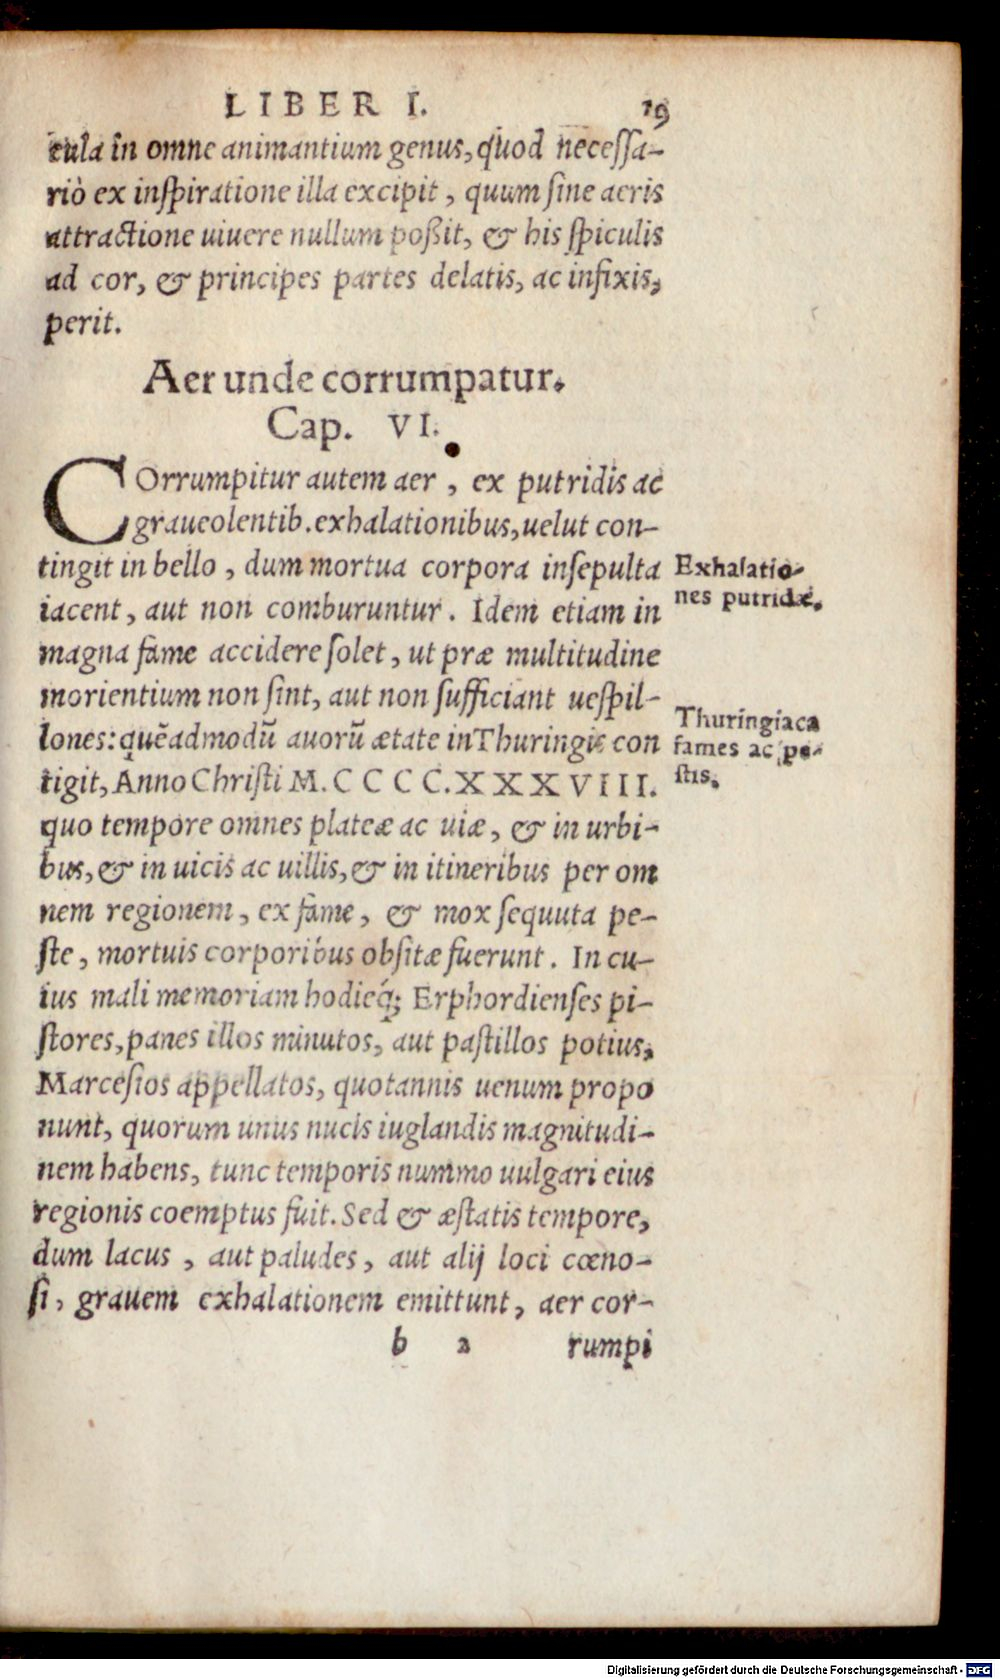 LIBER I. 19
cula in omne animantium genus, quod necessa-
riò ex inspiratione illa excipit, quum sine aeris
attractione uiuere nullum poßit, & his spiculis
ad cor, & principes partes delatis, ac infixis,
perit.
Aer unde corrumpatur.
Cap. VI.
COrrumpitur autem aer, ex putridis ac
graueolentib. exhalationibus, uelut con-
tingit in bello, dum mortua corpora insepulta
iacent, aut non comburuntur. Idem etiam in
magna fame accidere solet, ut præ multitudine
morientium non sint, aut non sufficiant uespil-
lones: quẽadmodũ auorũ ætate in Thuringia con
tigit, Anno Christi M.CCCC.XXXVIII.
quo tempore omnes plateæ ac uiæ, & in urbi-
bus, & in uicis ac uillis, & in itineribus per om
nem regionem, ex fame, & mox sequuta pe-
ste, mortuis corporibus obsitæ fuerunt. In cu-
ius mali memoriam hodieq́; Erphordienses pi-
stores, panes illos minutos, aut pastillos potius,
Marcesios appellatos, quotannis uenum propo
nunt, quorum unus nucis iuglandis magnitudi-
nem habens, tunc temporis nummo uulgari eius
regionis coemptus fuit. Sed & æstatis tempore,
dum lacus, aut paludes, aut alij loci cœno-
si, grauem exhalationem emittunt, aer cor-
b 2 rumpi
Exhalatio-
nes putridæ.
Thuringiaca
fames ac pe-
stis.
Digitalisierung gefördert durch die Deutsche Forschungsgemeinschaft - DFG